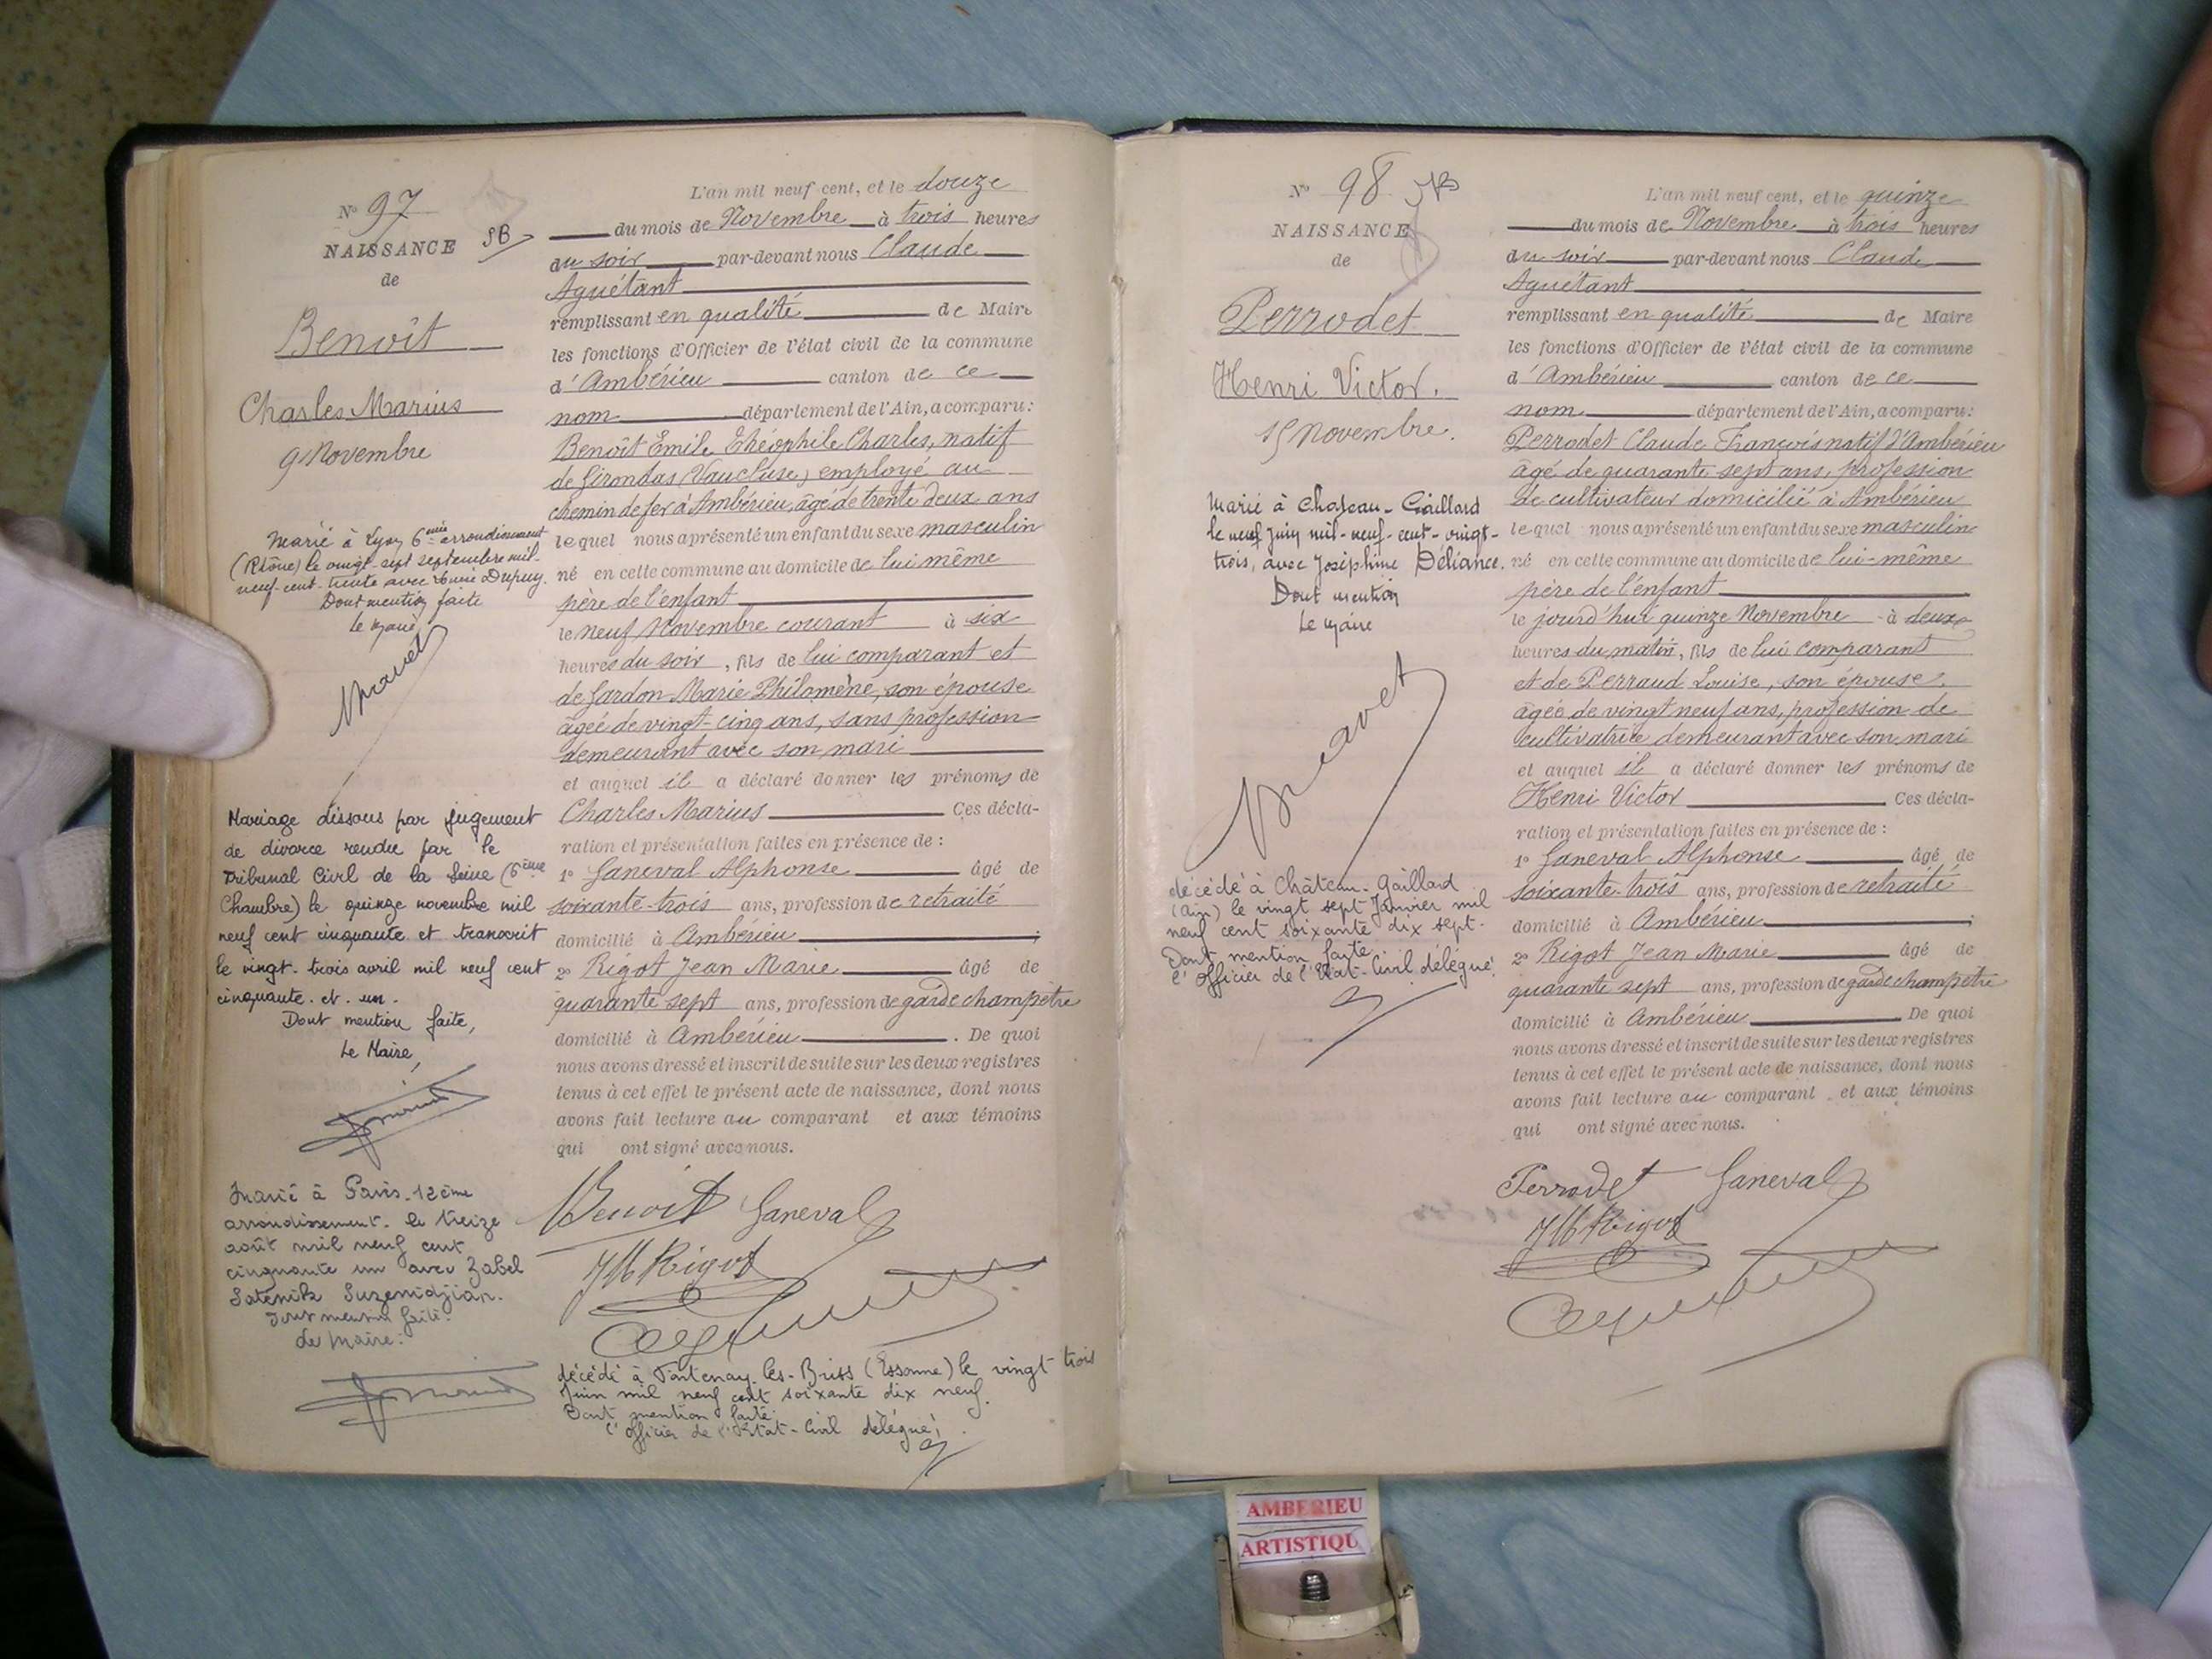 N° 97
NAISSANCE
SB
de
Benoît
Charles Marius
9 Novembre
Marié à Lyon 6ème arrondissement
(Rhône) le vingt-sept septembre mil-
neuf-cent-trente avec Marie Dupuy.
Dont mention faite
Le Maire
Mariage dissous par jugement
de divorce rendu par le
Tribunal Civil de la Seine (6ème
Chambre) le quinze novembre mil
neuf cent cinquante et transcrit
le vingt-trois avril mil neuf cent
cinquante et un.
Dont mention faite,
Le Maire,
Marié à Paris-12ème
arrondissement le treize
août mil neuf cent
cinquante un avec Zabel
Satenik Suzenidjian.
Dont mention faite.
Le Maire:
L'an mil neuf cent, et le douze
du mois de Novembre à trois heures
du soir par-devant nous Claude
Aguétant
remplissant en qualité de Maire
les fonctions d'Officier de l'état civil de la commune
d'Ambérieu canton de ce
nom département de l'Ain, a comparu:
Benoît Emile Théophile Charles, natif
de Girondas (Vaucluse) employé au
chemin de fer à Ambérieu, âgé de trente deux ans
lequel nous a présenté un enfant du sexe masculin
né en cette commune au domicile de lui même
père de l'enfant
le neuf Novembre courant à six
heures du soir, fils de lui comparant et
de Gardon Marie Philomène, son épouse
âgée de vingt-cinq ans, sans profession
demeurant avec son mari
et auquel il a déclaré donner les prénoms de
Charles Marius Ces décla-
ration et présentation faites en présence de :
1° Ganeval Alphonse âgé de
soixante-trois ans, profession de retraité
domicilié à Ambérieu ;
2° Rigot Jean Marie âgé de
quarante sept ans, profession de garde champêtre
domicilié à Ambérieu . De quoi
nous avons dressé et inscrit de suite sur les deux registres
tenus à cet effet le présent acte de naissance, dont nous
avons fait lecture au comparant et aux témoins
qui ont signé avec nous.
Benoit Ganeval
JM Rigot
décédé à Fontenay-les-Briis (Essonne) le vingt trois
Juin mil neuf cent soixante dix neuf.
Dont mention faite.
L'Officier de l'Etat-Civil délégué,
N° 98
NAISSANCE
de
Perrodet
Henri Victor.
15 Novembre.
Marié à Chateau-Gaillard
le neuf Juin mil-neuf-cent-vingt-
trois, avec Joséphine Déliance.
Dont mention
Le Maire
décédé à Château-Gaillard
(Ain) le vingt sept Janvier mil
neuf cent soixante dix sept.
Dont mention faite
L'Officier de l'Etat-Civil délégué.
L'an mil neuf cent, et le quinze
du mois de Novembre à trois heures
du soir par-devant nous Claude
Aguétant
remplissant en qualité de Maire
les fonctions d'Officier de l'état civil de la commune
d'Ambérieu canton de ce
nom département de l'Ain, a comparu:
Perrodet Claude François natif d'Ambérieu
âgé de quarante sept ans, profession
de cultivateur domicilié à Ambérieu
lequel nous a présenté un enfant du sexe masculin
né en cette commune au domicile de lui-même
père de l'enfant
le jourd'hui quinze Novembre à deux
heures du matin, fils de lui comparant
et de Perraud Louise, son épouse,
âgée de vingt neuf ans, profession de
cultivatrice demeurant avec son mari
et auquel il a déclaré donner les prénoms de
Henri Victor Ces décla-
ration et présentation faites en présence de :
1° Ganeval Alphonse âgé de
soixante-trois ans, profession de retraité
domicilié à Ambérieu ;
2° Rigot Jean Marie âgé de
quarante sept ans, profession de garde champêtre
domicilié à Ambérieu De quoi
nous avons dressé et inscrit de suite sur les deux registres
tenus à cet effet le présent acte de naissance, dont nous
avons fait lecture au comparant et aux témoins
qui ont signé avec nous.
Perrodet Ganeval
JM Rigot
AMBERIEU
ARTISTIQU